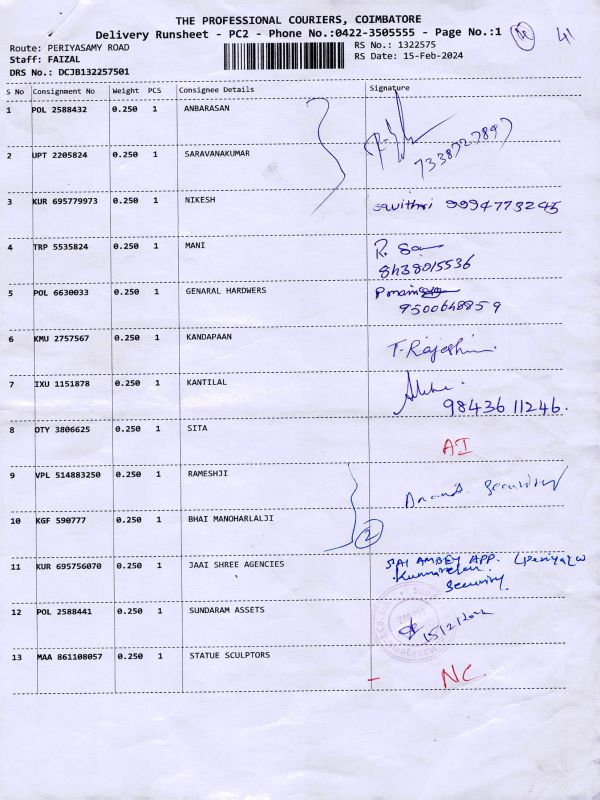 THE PROFESSIONAL COURIERS, COIMBATORE
Delivery Runsheet - PC2 - Phone No.:0422-3505555 - Page No.:1
Route: PERIYASAMY ROAD RS No.: 1322575
Staff: FAIZAL RS Date: 15-Feb-2024
DRS No.: DCJB132257501
S No Consignment No Weight PCS Consignee Details Signature
1 POL 2588432 0.250 1 ANBARASAN
2 UPT 2205824 0.250 1 SARAVANAKUMAR 7338727897
3 KUR 695779973 0.250 1 NIKESH savithri 9994773245
4 TRP 5535824 0.250 1 MANI
8438015536
5 POL 6630033 0.250 1 GENARAL HARDWERS
9500648859
6 KMU 2757567 0.250 1 KANDAPAAN T. Rajeshin
7 IXU 1151878 0.250 1 KANTILAL
9843611246.
8 OTY 3806625 0.250 1 SITA
AI
9 VPL 514883250 0.250 1 RAMESHJI Anand. Security
10 KGF 590777 0.250 1 BHAI MANOHARLALJI 2
11 KUR 695756070 0.250 1 JAAI SHREE AGENCIES SAI AMBEY APP.
Security.
12 POL 2588441 0.250 1 SUNDARAM ASSETS 15/2/2024
13 MAA 861108057 0.250 1 STATUE SCULPTORS
- NC